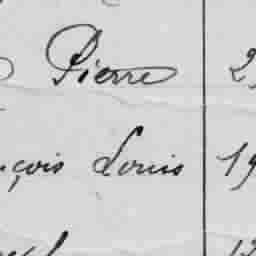 Pierre 2
çois Louis 19
12